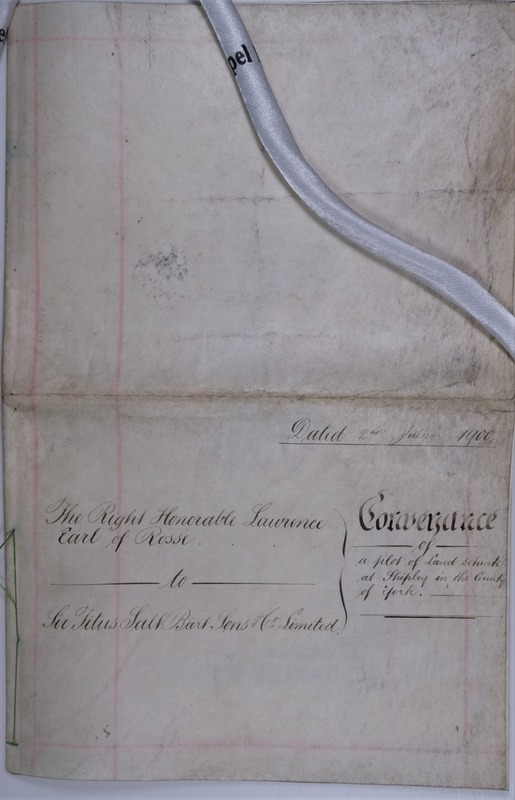 pel
Dated 2nd 1900
The Right Honorable Lawrence
Earl of Rosse
to
Sir Titus Salt Bart Sons & Co Limited.
Conveyance
of
a plot of Land situate
at Shipley in the County
of York.